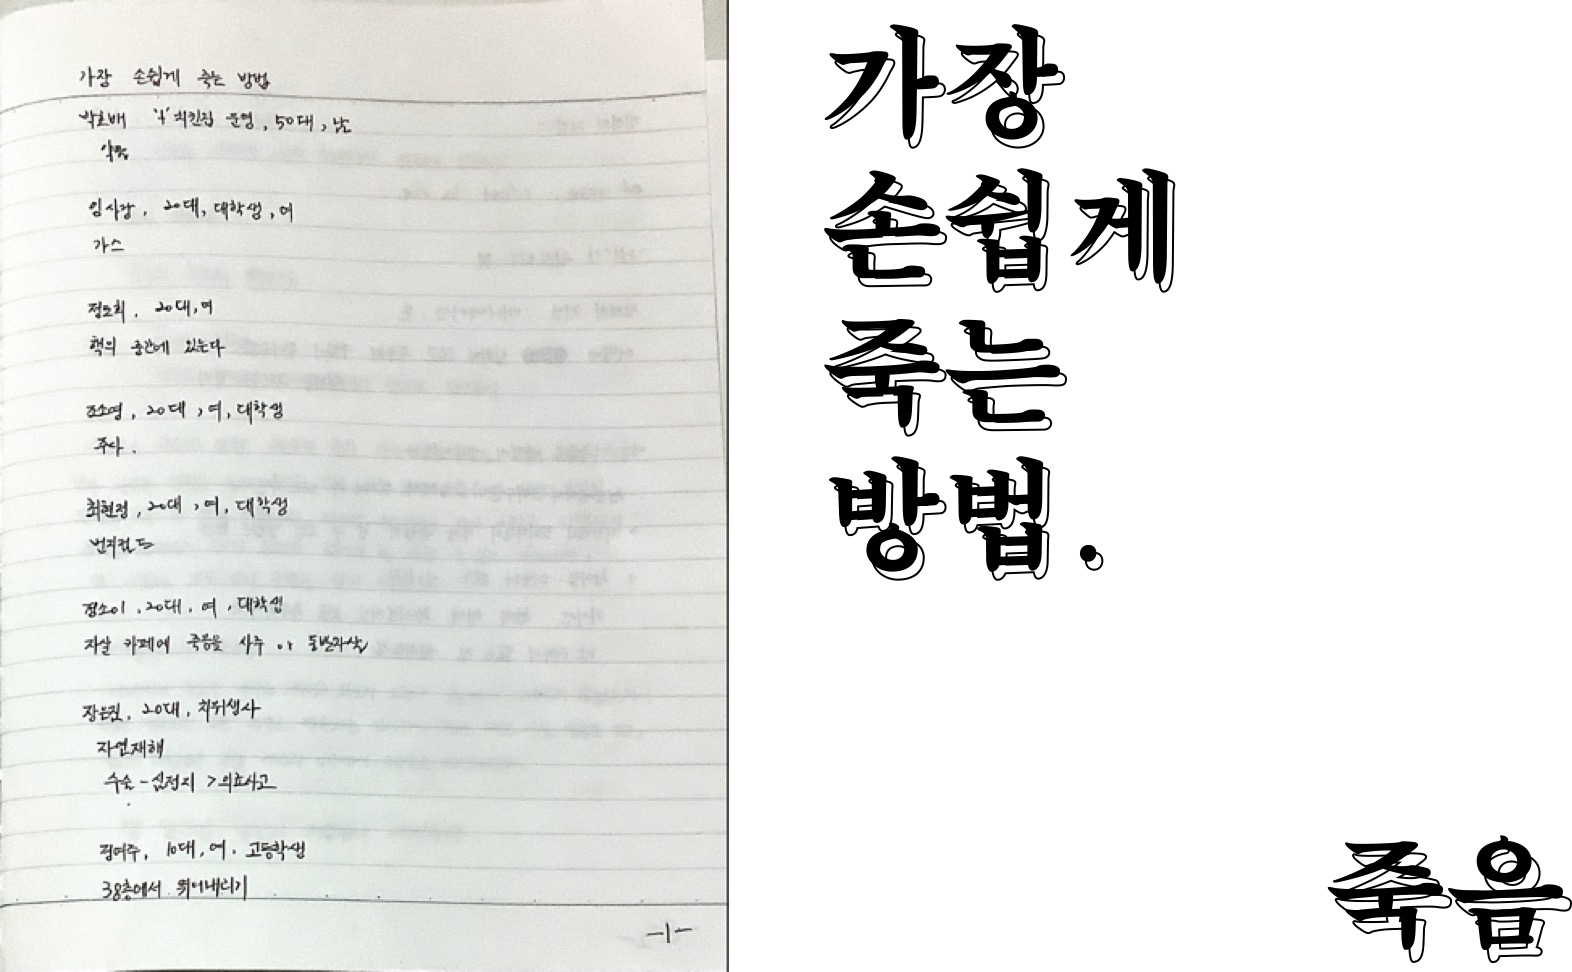 가장 손쉽게 죽는 방법
치킨집 운영, 50대, 남
20대, 대학생, 여
가스
20대, 여
책의 중간에 있는다
조소영, 20대, 여, 대학생
주사.
최현정, 20대, 여, 대학생
번지점프
정소이, 20대, 여, 대학생
자살 카페에 죽음을 사주 or 동반자살
20대, 치위생사
자연재해
수술 - 심정지 > 의료사고
정여주, 10대, 여. 고등학생
38층에서 뛰어내리기
-1-
가장
손쉽게
죽는
방법.
죽음